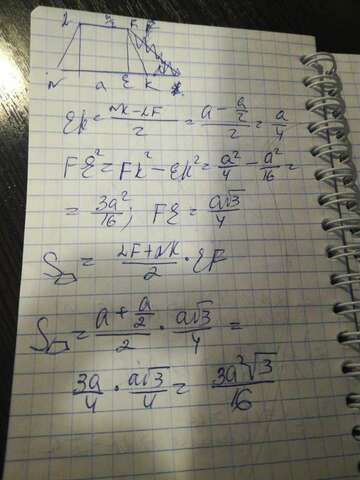 L F
N a E K
EK = (NK - LF)/2 = (a - a/2)/2 = a/4
FE² = FK² - EK² = a²/4 - a²/16 =
= 3a²/16; FE = a√3/4
S▱ = (LF + NK)/2 · EF
S▱ = (a + a/2)/2 · a√3/4 =
3a/4 · a√3/4 = 3a²√3/16